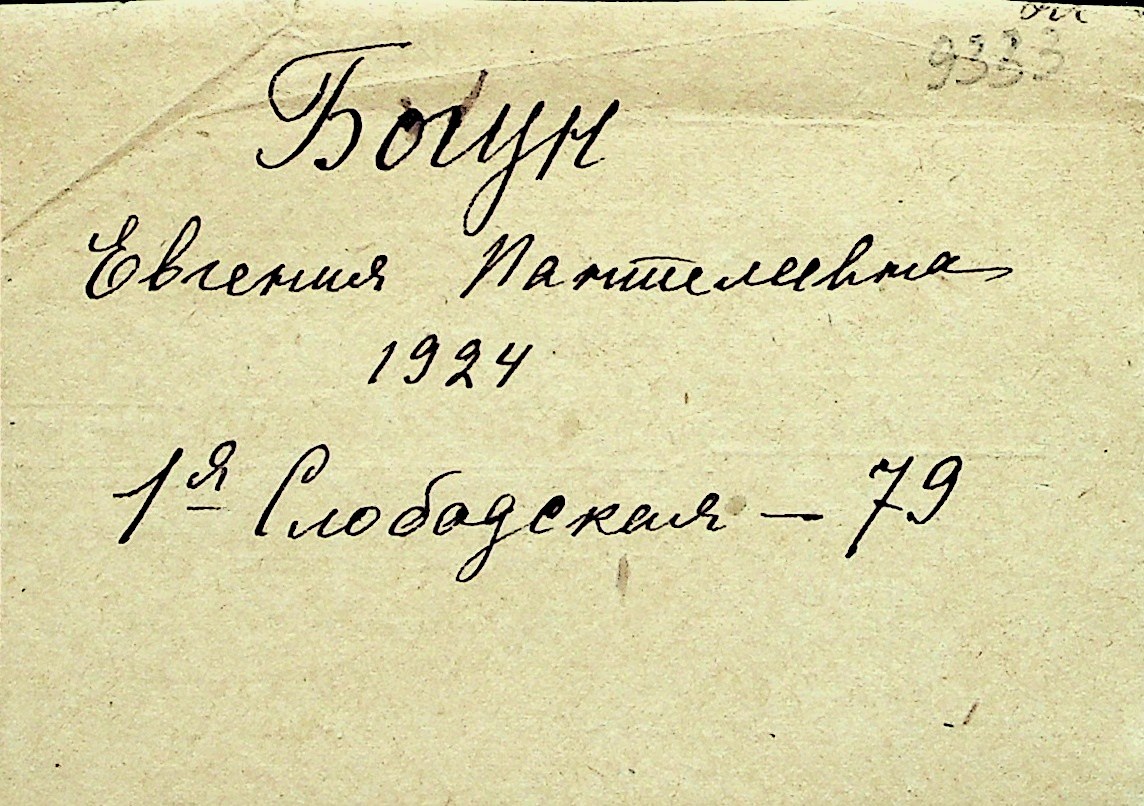 9333
Богун
Евгения Пантелеевна
1924
1я Слободская – 79